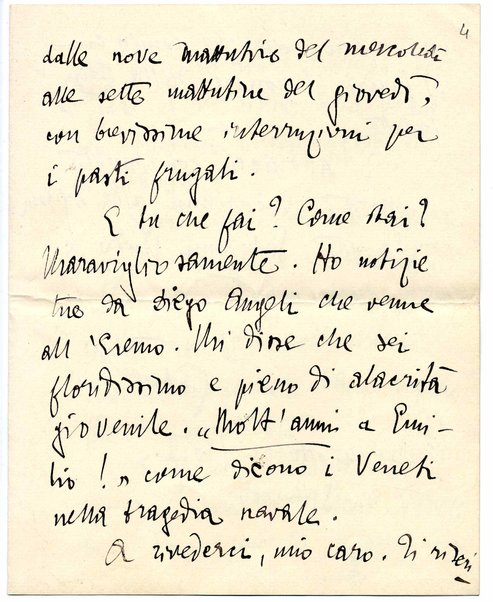 4
dalle nove mattutine del mercoledì
alle sette mattutine del giovedì,
con brevissime interruzioni per
i pasti frugali.
E tu che fai? Come stai?
Maravigliosamente. Ho notizie
tue da Diego Angeli che venne
all'Eremo. Mi disse che sei
floridissimo e pieno di alacrità
giovenile. „Molt'anni a Emi-
lio!„ come dicono i Veneti
nella tragedia navale.
A rivederci, mio caro. Ti